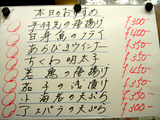 本日のおすすめ
手羽先の唐揚げ ¥300-
白身魚のフライ ¥400-
あらびきウインナー ¥350-
ちくわ明太子 ¥350-
若鶏の唐揚げ ¥350-
茄子の浅漬け ¥250-
小海老の天ぷら ¥350-
アスパラの天ぷら ¥300-